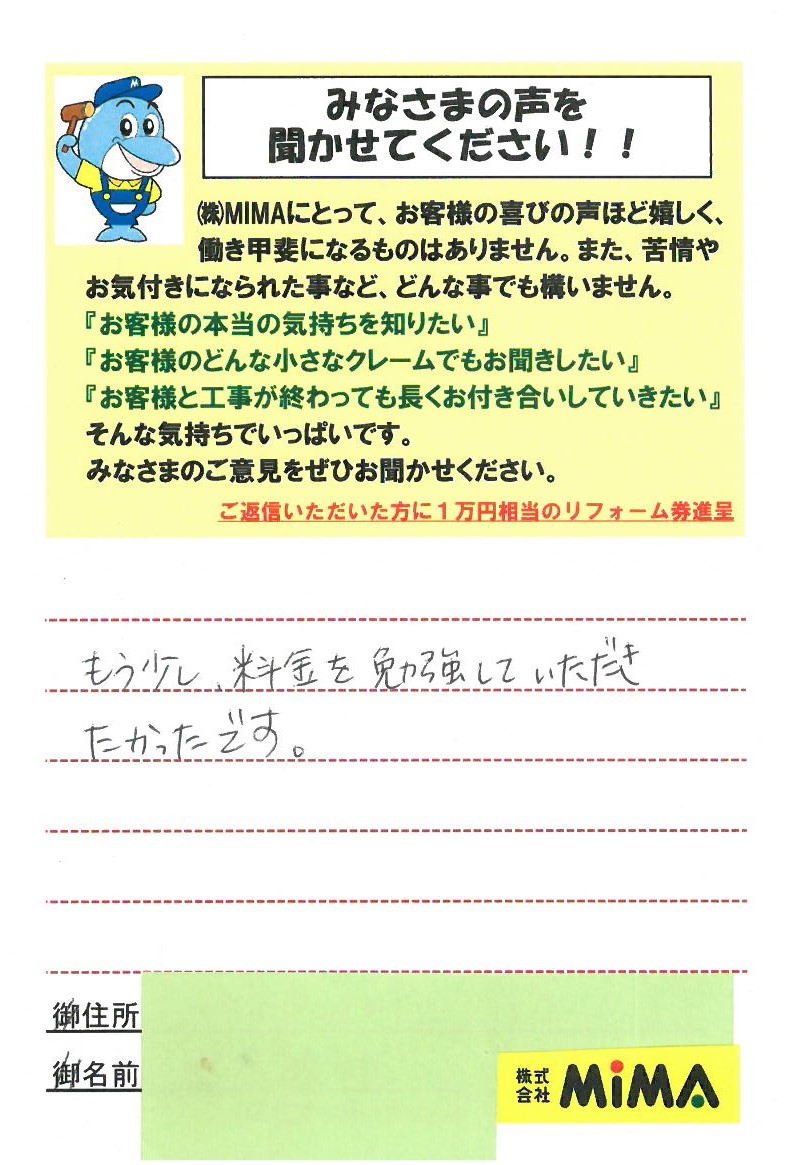 M
みなさまの声を
聞かせてください！！
㈱MIMAにとって、お客様の喜びの声ほど嬉しく、
働き甲斐になるものはありません。また、苦情や
お気付きになられた事など、どんな事でも構いません。
『お客様の本当の気持ちを知りたい』
『お客様のどんな小さなクレームでもお聞きしたい』
『お客様と工事が終わっても長くお付き合いしていきたい』
そんな気持ちでいっぱいです。
みなさまのご意見をぜひお聞かせください。
ご返信いただいた方に１万円相当のリフォーム券進呈
もう少し、料金を勉強していただき
たかったです。
御住所
御名前
株式
会社 MiMA